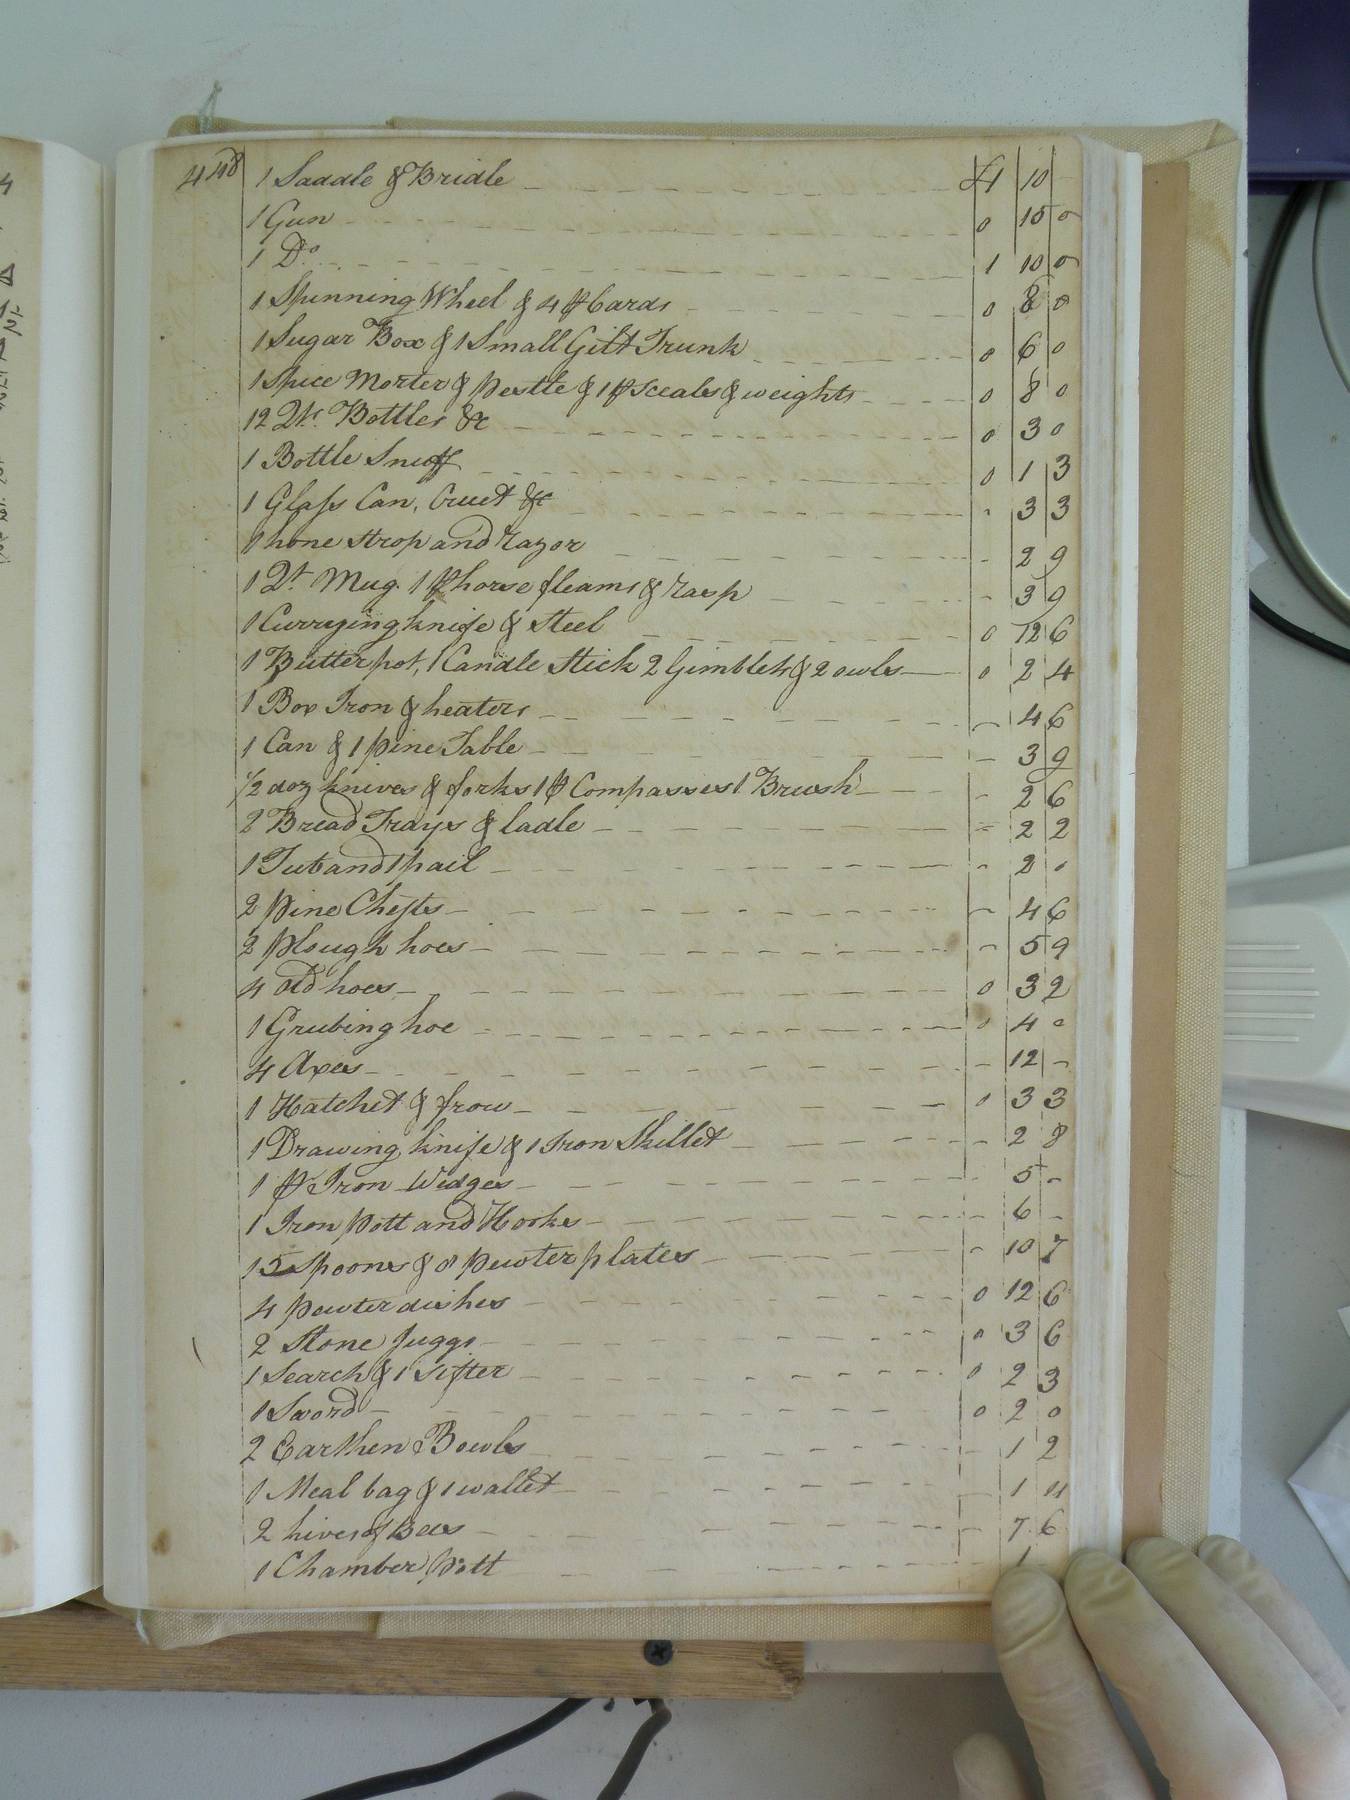 448 1 Saddle & Bridle £1 10
1 Gun 0 15 0
1 Do 1 10 0
1 Spinning Wheel & 4 pr Cards 0 8 0
1 Sugar Box & 1 Small Gilt Trunk 0 6 0
1 Spice Morter & pestle & 1 pr sceals & weights 0 8 0
12 Qt. Bottles &c 0 3 0
1 Bottle Snuff 0 1 3
1 Glass Can, Cruet &c - 3 3
1 hone strop and razor - 2 9
1 Qt Mug. 1 pr horse fleams & rasp - 3 9
1 Currying knife & steel 0 12 6
1 Butter pot, 1 Candle stick 2 Gimblets & 2 owls 0 2 4
1 Box Iron & heaters - 4 6
1 Can & 1 pine Table - 3 9
1/2 doz knives & forks 1 pr Compasses 1 Brush - 2 6
2 Bread Trays & ladle - 2 2
1 Tub and 1 pail - 2 0
2 pine Chests - 4 6
2 plough hoes - 5 9
4 old hoes 0 3 2
1 Grubing hoe 0 4 0
4 Axes - 12 -
1 Hatchet & frow 0 3 3
1 Drawing knife & 1 Iron Skillet - 2 8
1 pr Iron Widges 5 -
1 Iron pott and Hooks - 6 -
15 Spoons & 8 pewter plates - 10 7
4 pewter dishes 0 12 6
2 Stone Juggs 0 3 6
1 Search & 1 sifter 0 2 3
1 Sword 0 2 0
2 Earthen Bowls - 1 2
1 Meal bag & 1 wallet - 1 11
2 hives of Bees - 7 6
1 Chamber pott 1